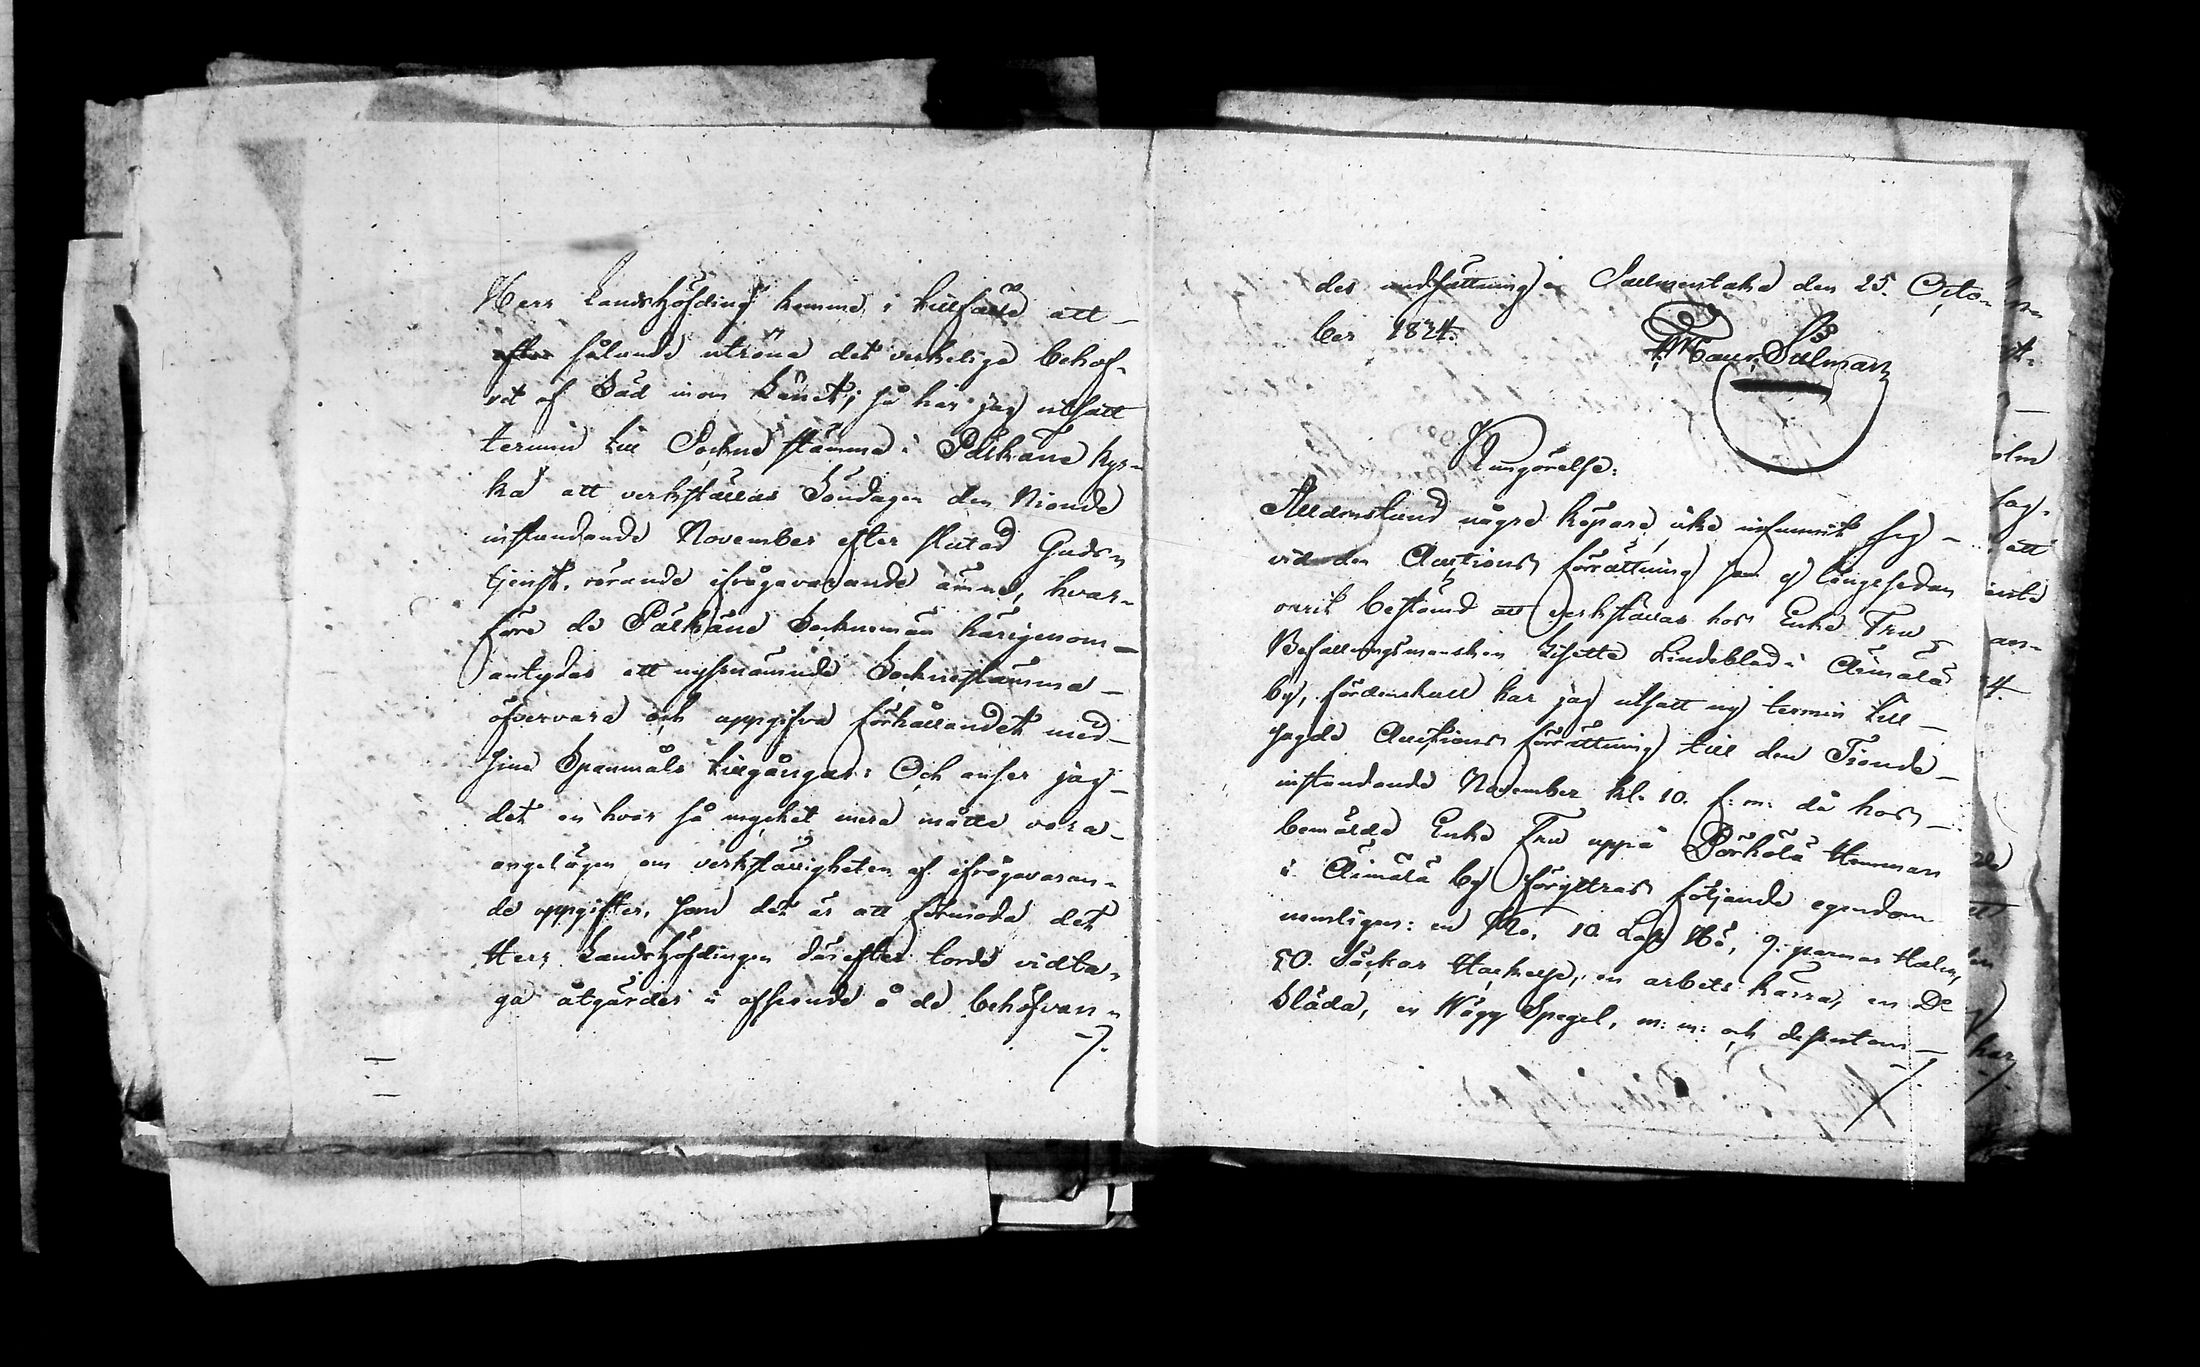 Herr Landshöfding komma i tillfälle att
efter sålunda utröna det verkeliga behof-
vet af Säd inom Länet; så har jag utsatt
termin till Sockne stämma i Pälkäne Kyr-
ka att verkställas Söndagen den Nionde
instundande November efter slutad Guds-
tjenst, rörande ifrågavarande ämne, hvar-
före de Pälkäne Socknemän härigenom
antydas att nyssnämnde Socknestämma
öfvervara och uppgifva förhållandet med
sina Spanmåls tillgångar: Och anser jag
det en hvar så mycket mera måtte vara
angelägen om verkställigheten af ifrågavaran-
de uppgifter, som det är att förmoda det
Herr Landshöfdingen därefter torde vidta-
ga åtgärder i afseende å de behöfvan-
des undsättning. Sallmentaka den 25. Octo-
ber 1824.
Salman
Kungörelse:
Alldenstund någre Köpare icke infunnit sig
vid den Auctions förrättning som ej längesedan
varit bestämd att verkställas hos Enke Fru
Befallningsmanskan Lisette Lindeblad i Äimälä
by, fördenskull har jag utsatt ny termin till
sagde Auctions förrättning till den Tionde
instundande November kl. 10. f: m: då hos
bemälde Enke Fru uppå Pörhölä Hemman
i Äimälä by föryttras följande egendom
nemligen: en Ko, 10. Lass Hö, 9. parmar Halm,
50. Säckar Hackelse, en arbets kärra, en D:o
Släda, en Wägg Spegel, m: m: och dessutom